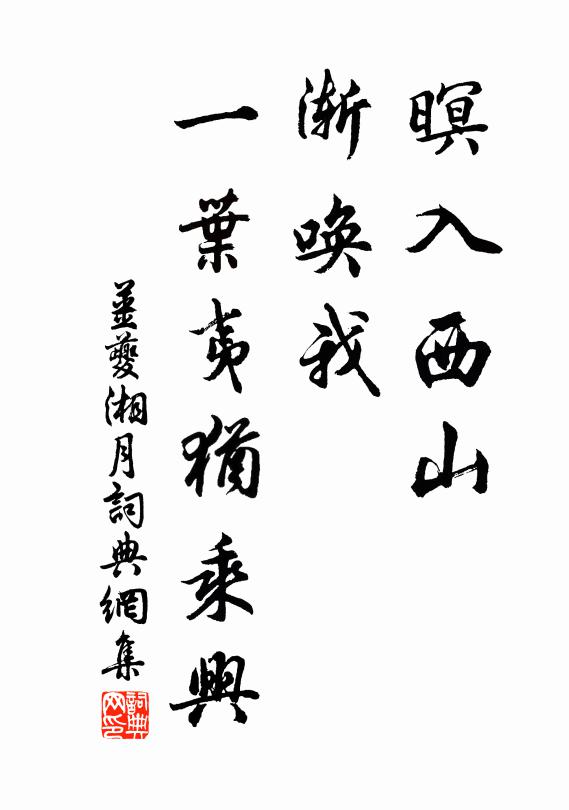 暝入西山
漸喚我
一葉夷猶乘興
姜夔湘月詞典網集
詞典網印